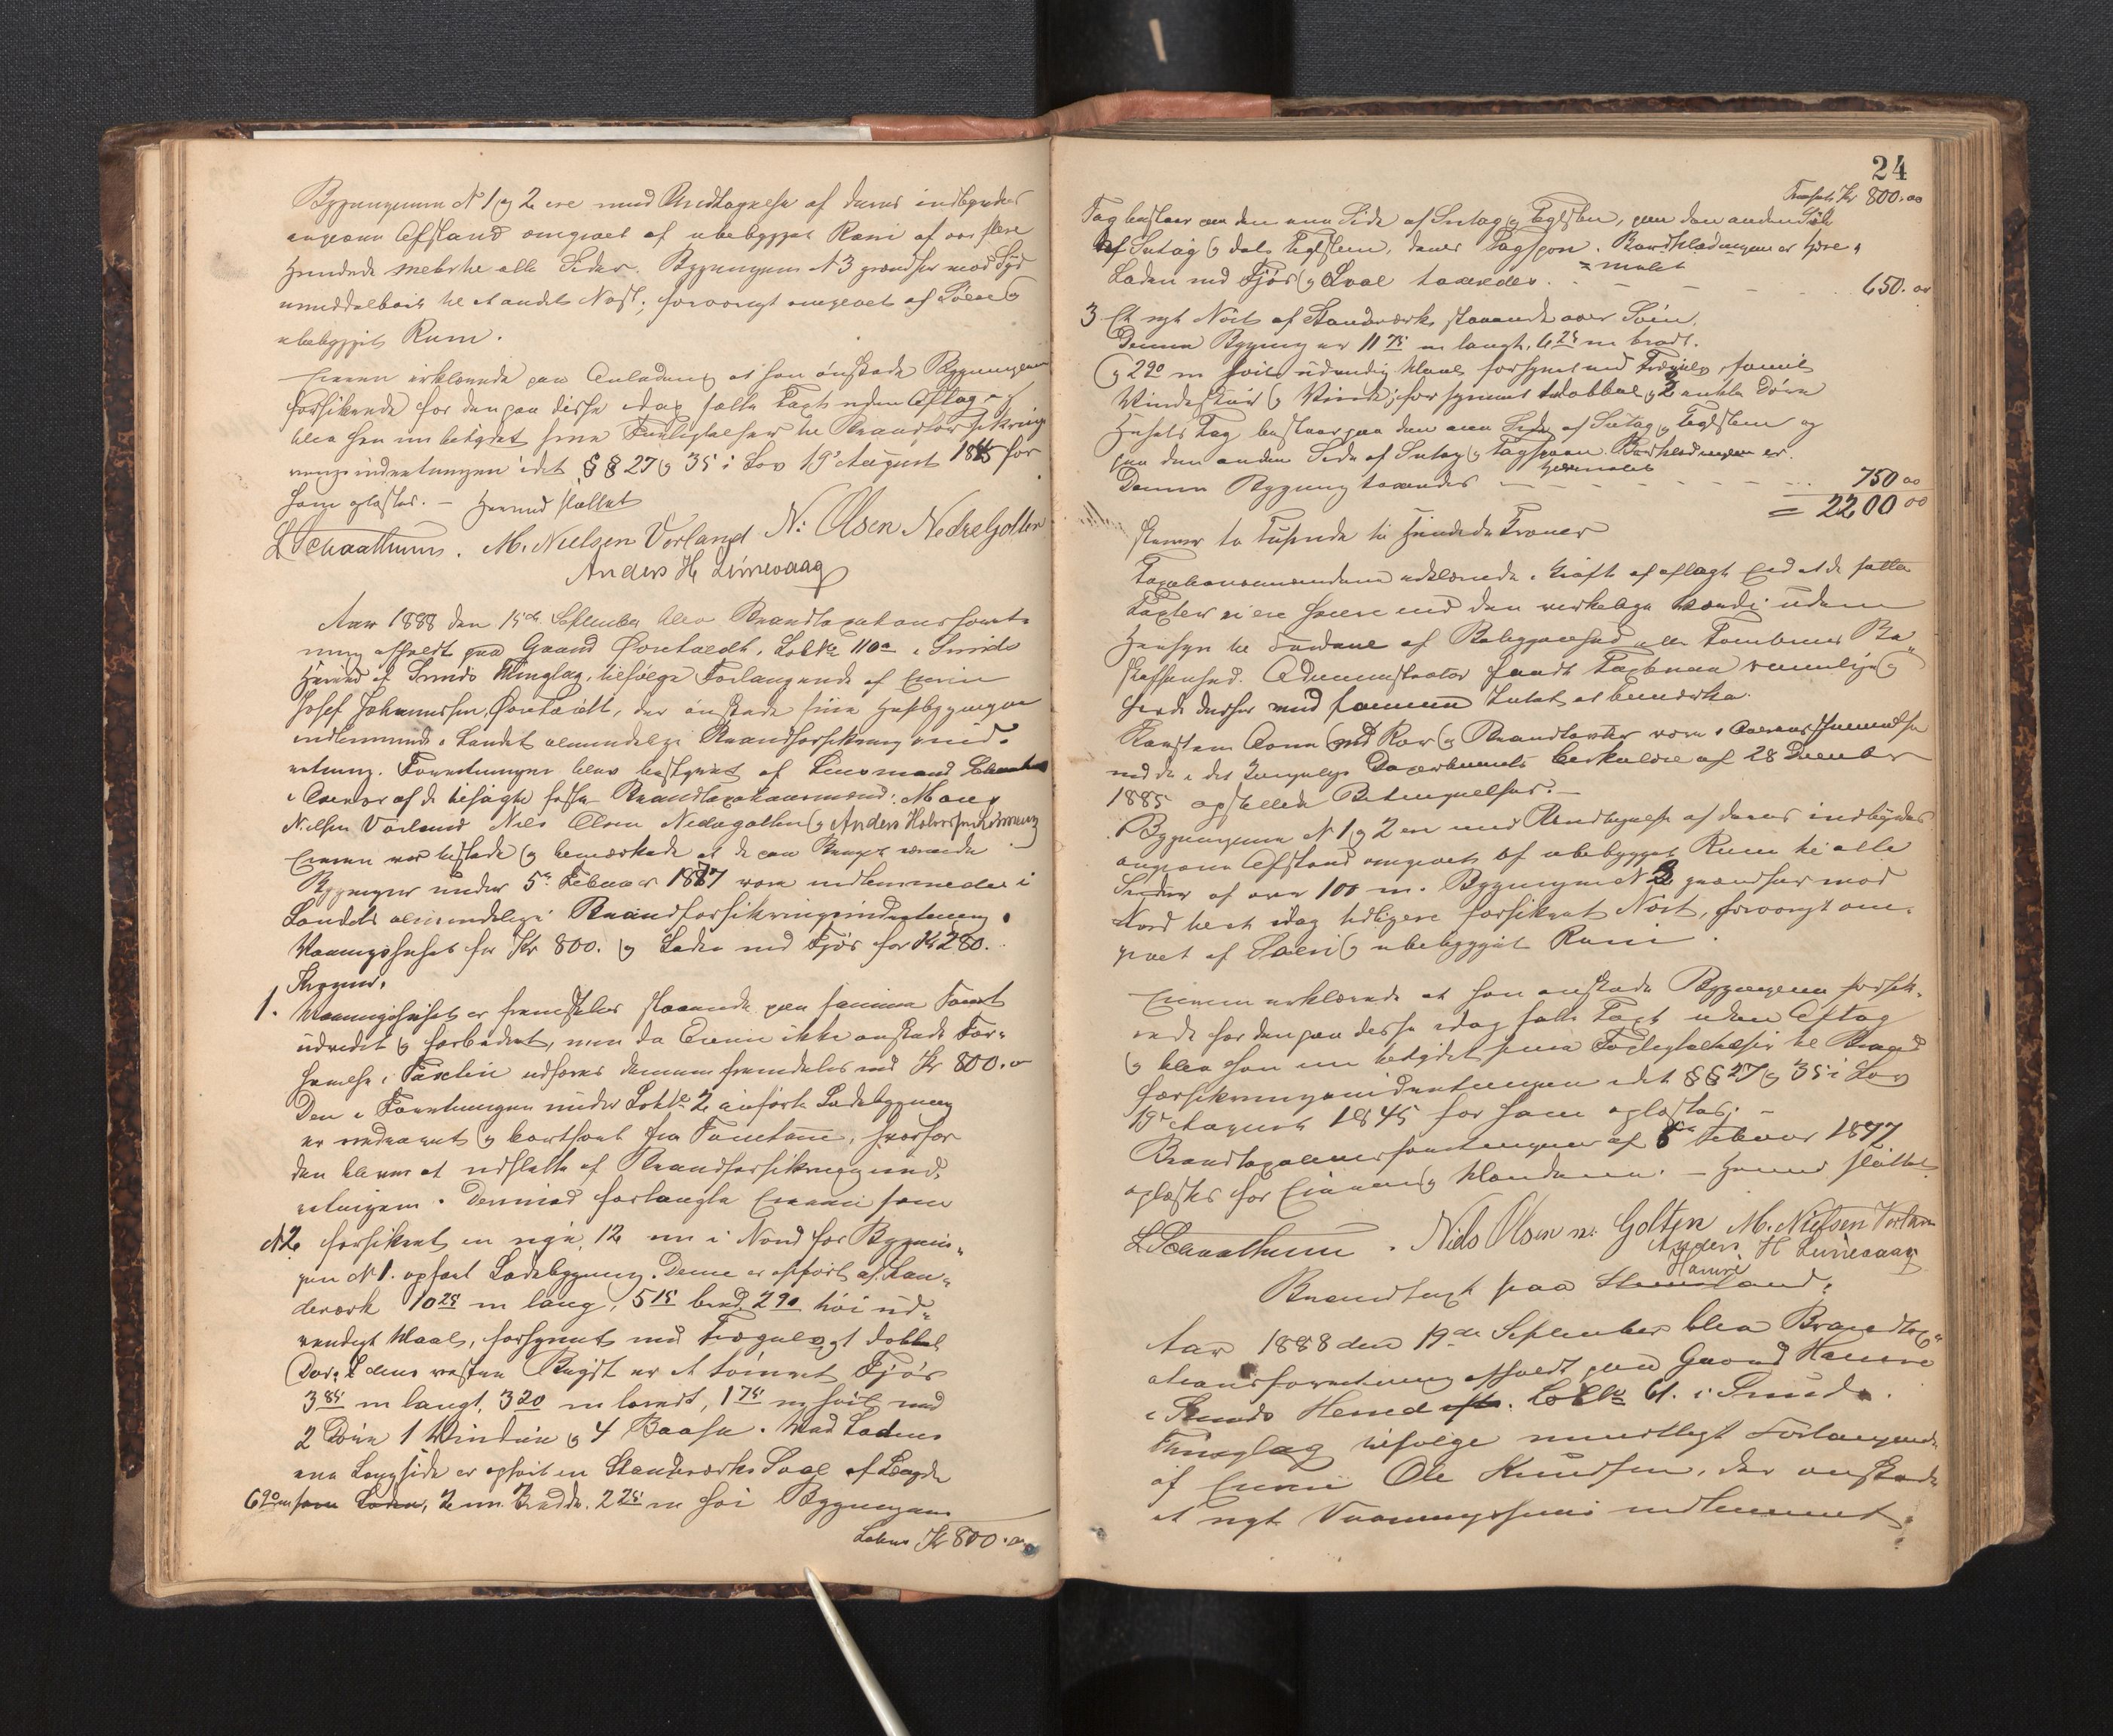 Bygningerne N 1 og 2 ere med Undtagelse af deres indbyrdes
angivne Afstand omgivet af ubebygget Rum af over flere
hundrede meter til alle Sider. Bygningen N 3 grændser mod Syd
umiddelbart til et andet Nøst, forøvrigt omgivet af Søen og
ubebygget Rum.
Eieren erklærede paa Anledning at han ønskede Bygningerne
forsikrede for den paa disse idag satte Taxt uden Aftag og
blev han nu betydet sine Forpligtelser til Brandforsikring
indretningen idet §§ 27 og 35 i Lov 19 August 1845 for
ham oplæstes. — Hermed sluttet
L Schaathuun. M. Nielsen Vorland N: Olsen Nedre Golten
Anders H Linevaag
Aar 1888 den 15de September blev Brandtaxationsforret-
ning afholdt paa Gaard Øvretvedt, Løbe No 110a i Sunds
Herred af Sunds Thinglag, tilfølge Forlangende af Eieren
Josef Johannessen Øvretvedt, der ønskede sine Husbygninger
indlemmede i Landets almindelige Brandforsikringsind-
retning. Forretningen blev bestyret af Lensmand Schaathun
i Overvær af de tilsagte faste Brandtaxationsmænd: Mons
Nielsen Vorland Nils Olsen Nedregolten og Anders Halvorsen Linevaag
Eieren var tilstede og bemærkede at de paa Bruget værende
Bygninger under 5te Februar 1877 vare indlemmede i
Landets almindelige Brandforsikringsindretning.
Vaaningshuset for Kr 800. og Laden med Fjøs for Kr 280.
1. Vaaningshuset er fremdeles staaende paa samme Tomt
udvidet og forbedret, men da Eieren ikke ønskede For-
høielse i Taxten udføres denne fremdeles med Kr 800.00
Den i Forretningen under Litr 2 anførte Ladebygning
er nedrevet og bortført fra Tomten, hvorfor
den bliver at udslette af Brandforsikringsind-
retningen. Derimod forlangte Eieren som
N 2 forsikret en ny, 12 m i Nord for Bygnin-
gen N 1. opført Ladebygning. Denne er opført af Stan-
derværk 10 25 m lang, 5 15 bred 2 90 høi ud-
vendigt Maal, forsynet med Trægulv og 1 dobbel
Dør. I dens vestre Bygt er et tømret Fjøs
3 85 m langt, 3 20 m bredt, 1 75 m høit med
2 Døre 1 Vindue og 4 Baase. Ved Ladens
ene Langside er opført en Standværks Sval af Længde
6 90 m som Laden, 2 m Bredde. 2 25 m høi Bygningens
Latus Kr 800.00
24
Transport Kr 800.00
Tag bestaar paa den ene Side af Sutag og Teglsten, paa den anden Side
af Sutag og dels Teglsten, dels Tagspon. Bordklædningen er tjære-
= malet
Laden med Fjøs og Sval taxeredes - - - 650.00
3 Et nyt Nøst af Standværk, staaende over Søen.
Denne Bygning er 11 75 m langt, 6 25 m bredt.
og 2 90 m høit udvendig Maal forsynet med Trægulv, samt
Vindeskur og Vinde; forsynet dobbel og 2 enkle Døre
Husets Tag bestaar paa den ene Side af Sutag og Teglsten og
paa den anden Side af Sutag og Tagspaan. Bordklædningen er
tjæremalet
Denne Bygning taxeredes - - - 750 00
= 2200 00
skriver to Tusinde to Hundrede Kroner
Taxationsmændene erklærede i Kraft af aflagt Eed at de satte
Taxter ei ere høiere end den virkelige Værdi uden
Hensyn til Fordele af Beliggenhed eller Tomtens Be-
skaffenhed. Administrator fandt Taxterne rimelige og
havde derfor mod samme Intet at bemærke.
Skorsten Ovne med Rør og Brandtavler vare i Overensstemmelse
med de i det Kongelige Departements Cirkulære af 28 December
1885 opstillede Betingelser. —
Bygningerne N 1 og 2 ere med Undtagelse af deres indbyrdes
angivne Afstand omgivet af ubebygget Rum til alle
Sider af over 100 m. Bygningen N 3 grændser mod
Nord til et idag tidligere forsikret Nøst, forøvrigt om-
givet af Søen og ubebygget Rum.
Eieren erklærede at han ønskede Bygningerne forsik-
rede for den paa disse idag satte Taxt uden Aftag
og blev han nu betydet sine Forpligtelser til Brand
forsikringsindretningen idet §§ 27 og 35 i Lov
19de August 1845 for ham oplæstes. —
Brandtaxationsforretningen af 5te Februar 1877
oplæstes for Eieren og Mændene. — Hermed sluttet
L Schaathuun. Niels Olsen n: Golten M. Nielsen Vorland
Anders H Linevaag
Hamre
Brandtaxt paa :
Aar 1888 den 19de September blev Brandtax-
ationsforretning afholdt paa Gaard Hamre
i Sunds Herred Løbe No 61. i Sunds
Thinglag tilfølge mundtligt Forlangende
af Eieren Ole Knudsen, der ønskede
et nyt Vaaningshuus indlemmet